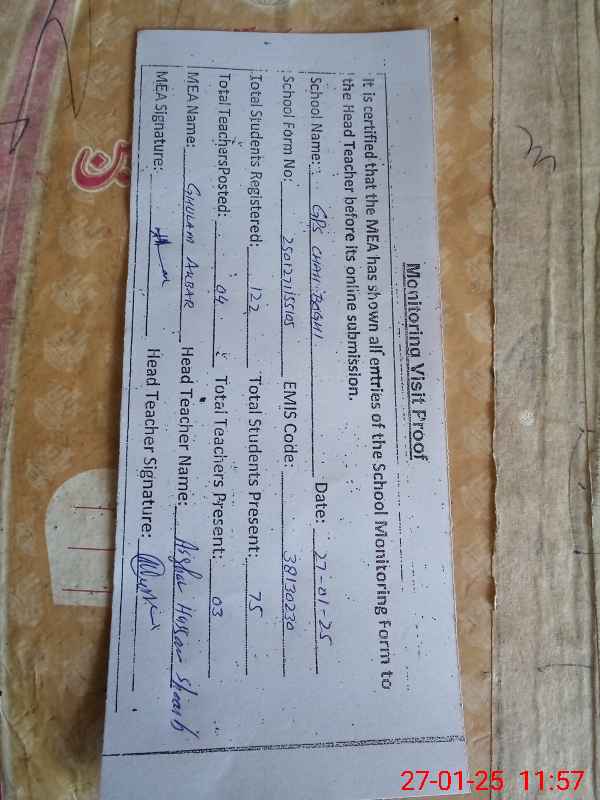 Monitoring Visit Proof
It is certified that the MEA has shown all entries of the School Monitoring Form to
the Head Teacher before its online submission.
School Name: GPS CHAH BAGHI Date: 27-01-25
School Form No: 250127155105 EMIS Code: 38130230
Total Students Registered: 122 Total Students Present: 75
Total Teachers Posted: 04 Total Teachers Present: 03
MEA Name: GHULAM AKBAR Head Teacher Name: Asghar Hussain
MEA Signature: Head Teacher Signature:
27-01-25 11:57